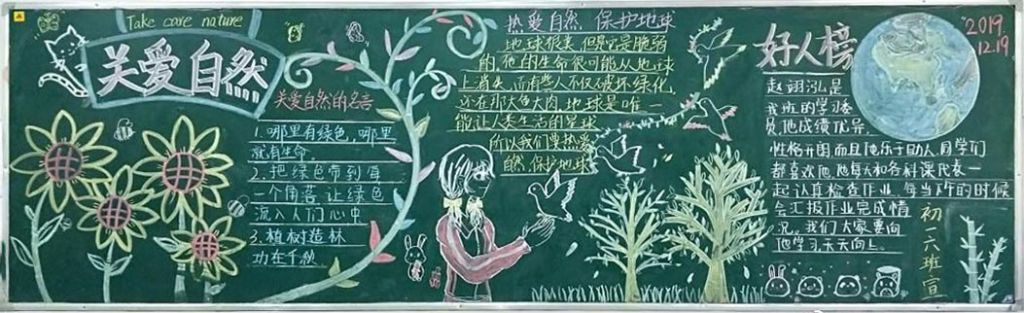 Take care nature
关爱自然
关爱自然的名言
1.哪里有绿色,哪里
就有生命。
2.把绿色带到每
一个角落让绿色
流入人们心中
3.植树造林
功在千秋。
热爱自然 保护地球
地球很美 但是它是脆弱
的 他的生命很可能从地球
上消失 而有些人不仅破坏绿化,
还在那大鱼大肉,地球是唯一
能让人类生活的星球
所以我们要热爱
自然,保护地球
好人榜
赵翊泓是
我班的学习委
员他成绩优异、
性格开朗而且他乐于助人同学们
都喜欢他他每天和各科课代表一
起认真检查作业 每当下午的时候
会汇报作业完成情
况。我们大家要向
他学习天天向上。
2019
12.19
初一六班宣